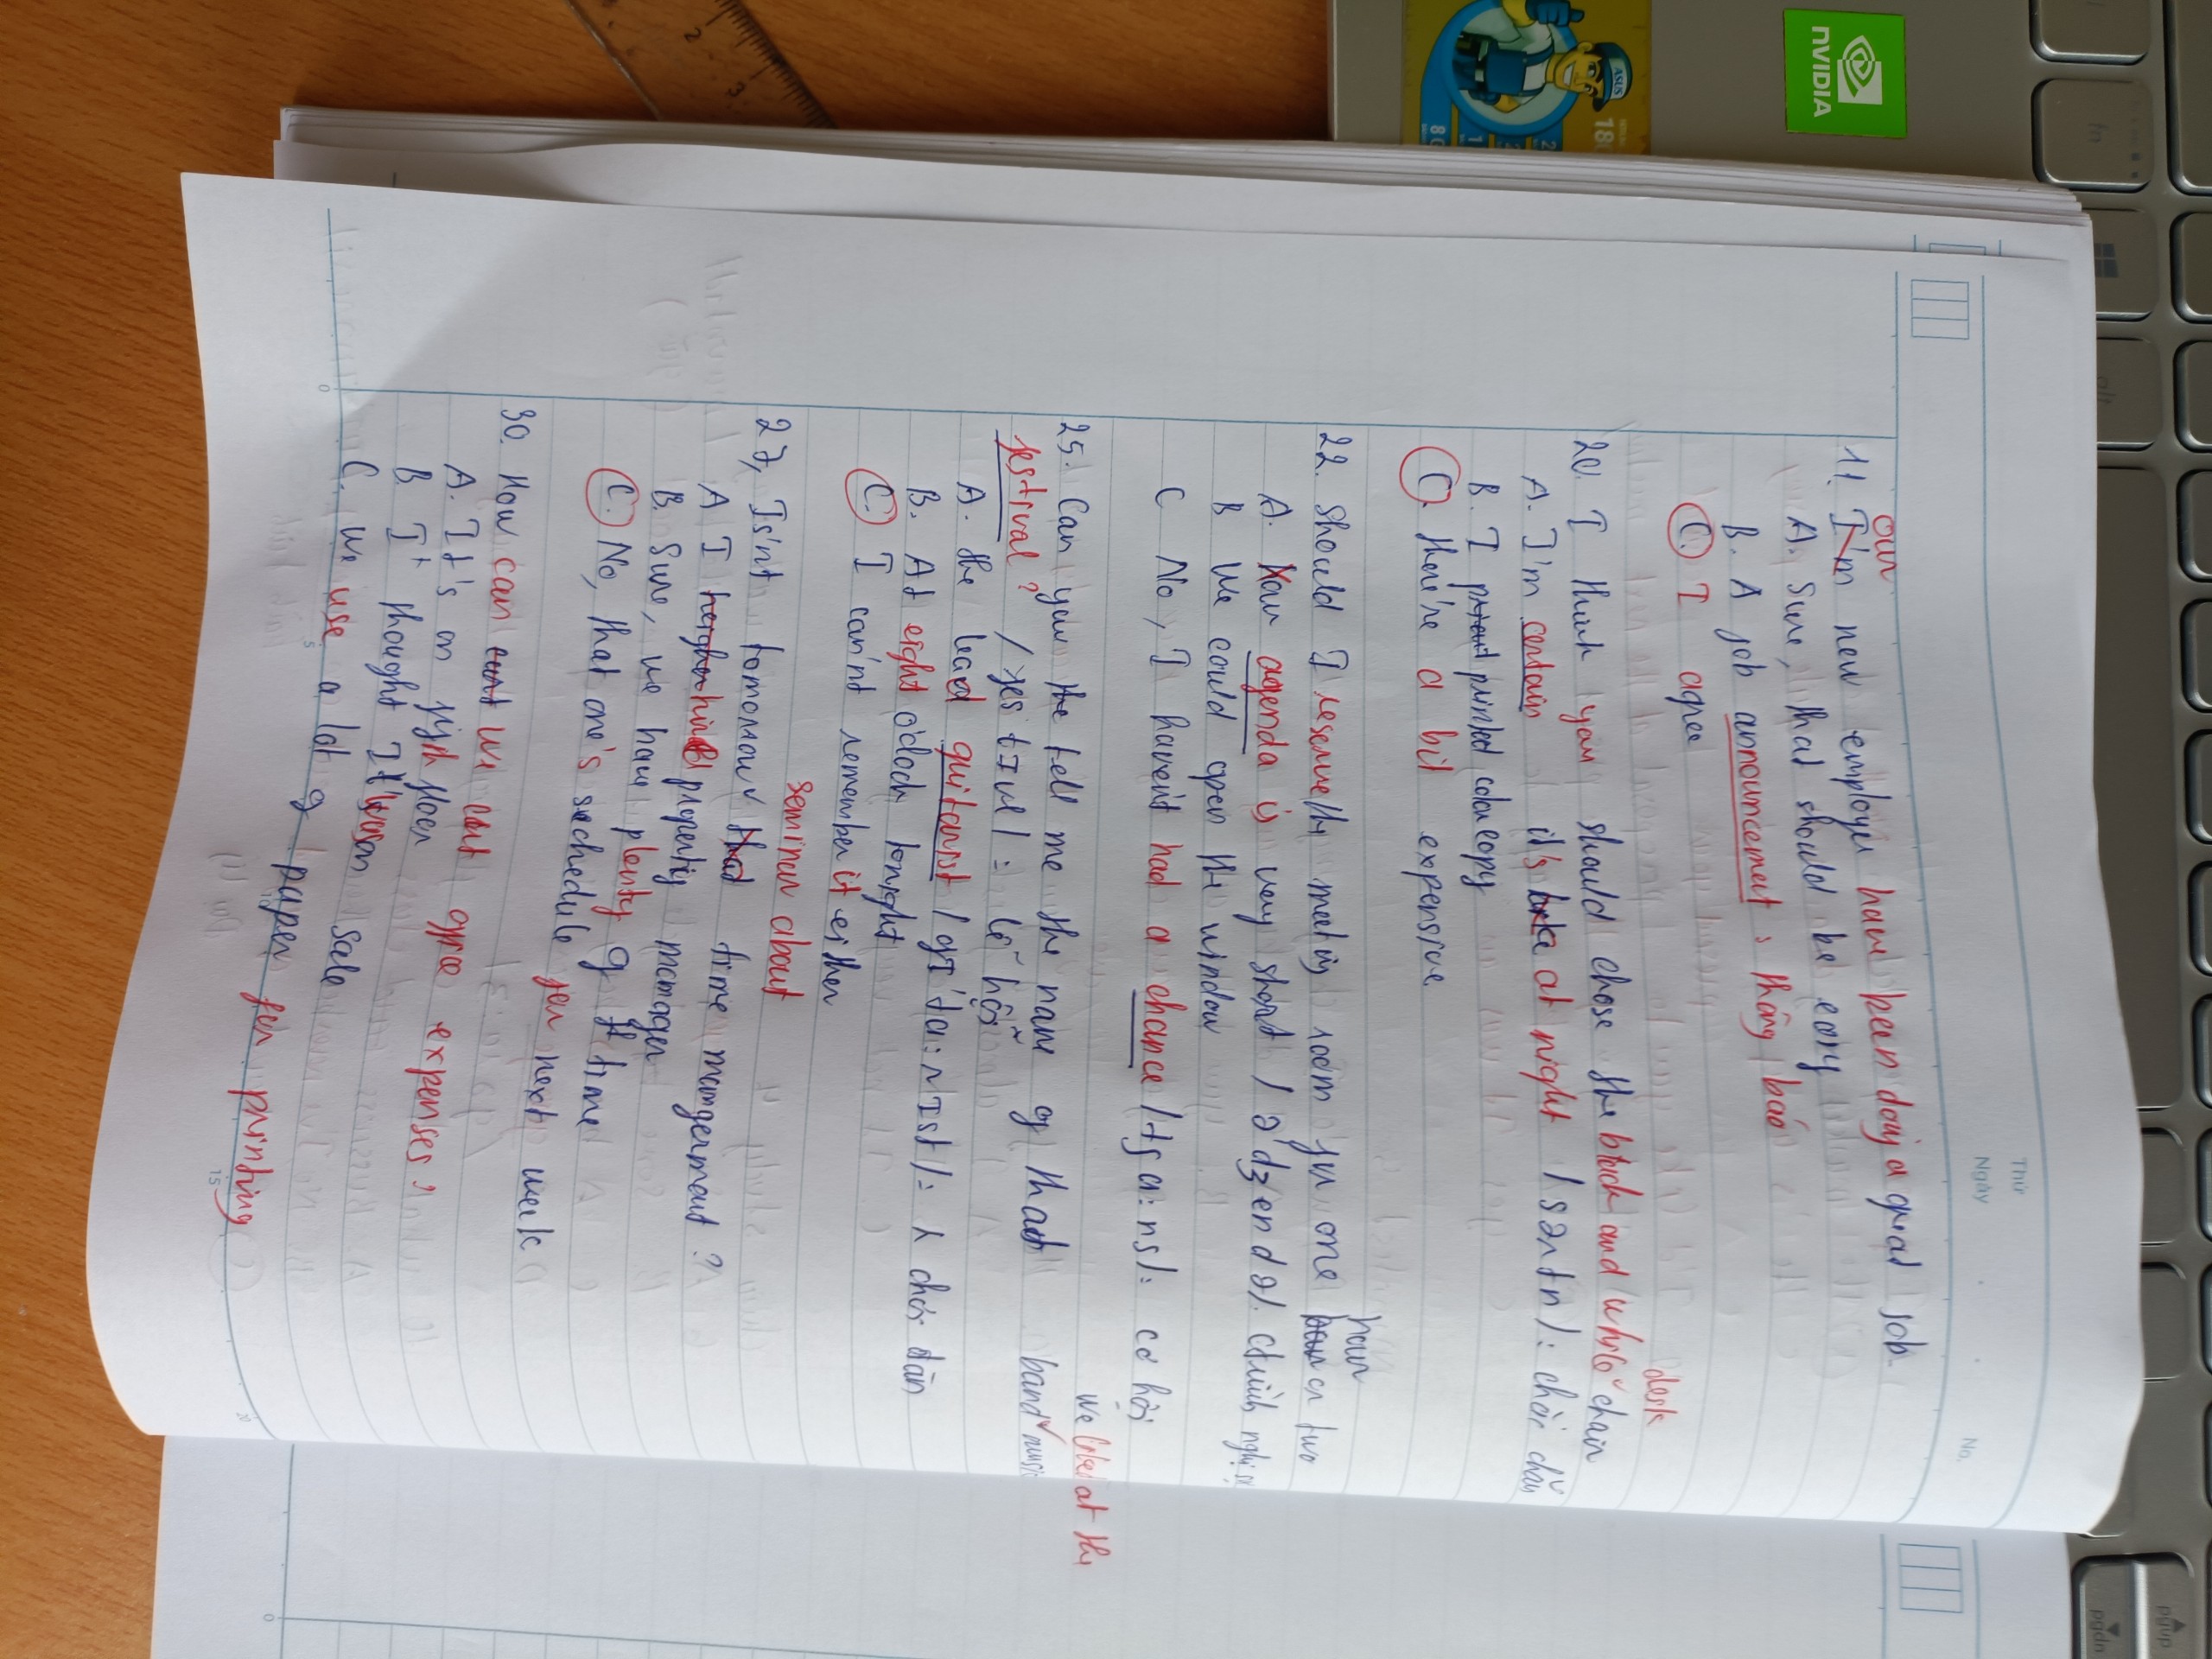 Thứ
Ngày
No.
our
11. I'm new employer have been doig a great job
A. Sure, that should be easy
B. A job announcement : thông báo
C. I agree
desk
20. I think you should chose the black and white chair
A. I'm certain it's late at night / sərtn / : chắc chắn
B. I printed colour copy
C. there're a bit expensive
hour
22. Should I reserve the meeting room for one or two
A. Your agenda is very short / ə'dʒendə/. chương nghị sự
B We could open the window
C No, I haven't had a chance / tʃa:ns/: cơ hội
we liked at the
25. Can you tell me the name of that band music
festival ? / 'festɪvl / : lễ hội
A. the lead guitarist / gɪ'ta:rɪst / : chơi đàn
B. At eight o'clock tonight
C. I can'nt remember it either
seminar about
27, Isn't tomorrow that time mangerment ?
A I property manager
B. Sure, we have plenty of time
C. No, that one's schedule for next week
30. How can we cut office expenses ?
A. It's on fifth floor
B It thought It's on sale
C. We use a lot of paper for printing
0
5
15
20
0
NVIDIA
ASUS
fn
alt
pgup
pgdn
2
3